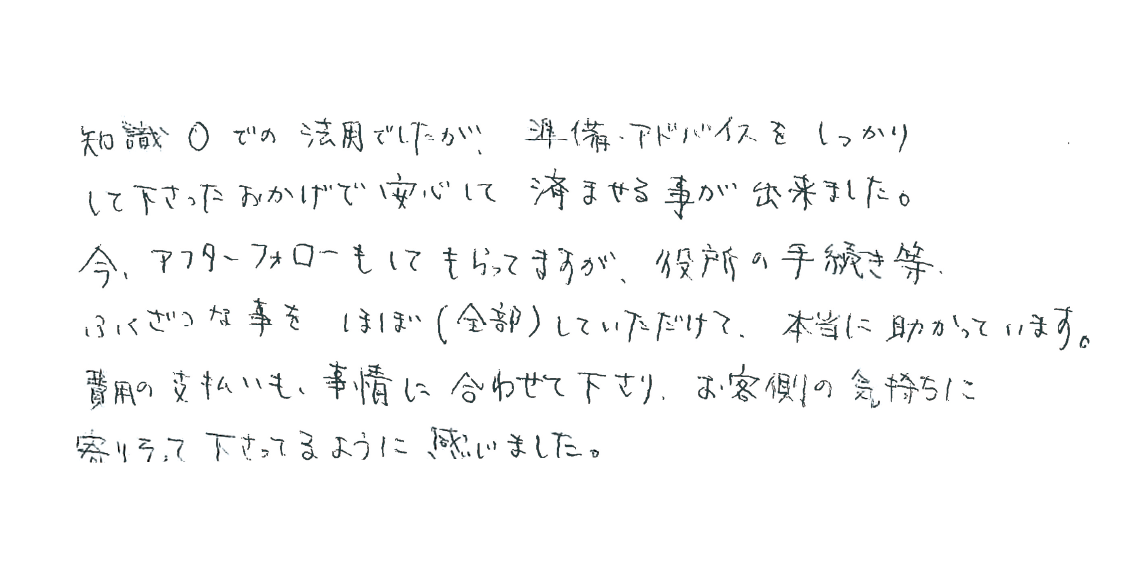 知識0での法用でしたが、準備・アドバイスをしっかり
して下さったおかげで安心して済ませる事が出来ました。
今、アフターフォローもしてもらってますが、役所の手続き等、
ふくざつな事をほぼ(全部)していただけて、本当に助かっています。
費用の支払いも、事情に合わせて下さり、お客側の気持ちに
寄りそって下さってるように感じました。